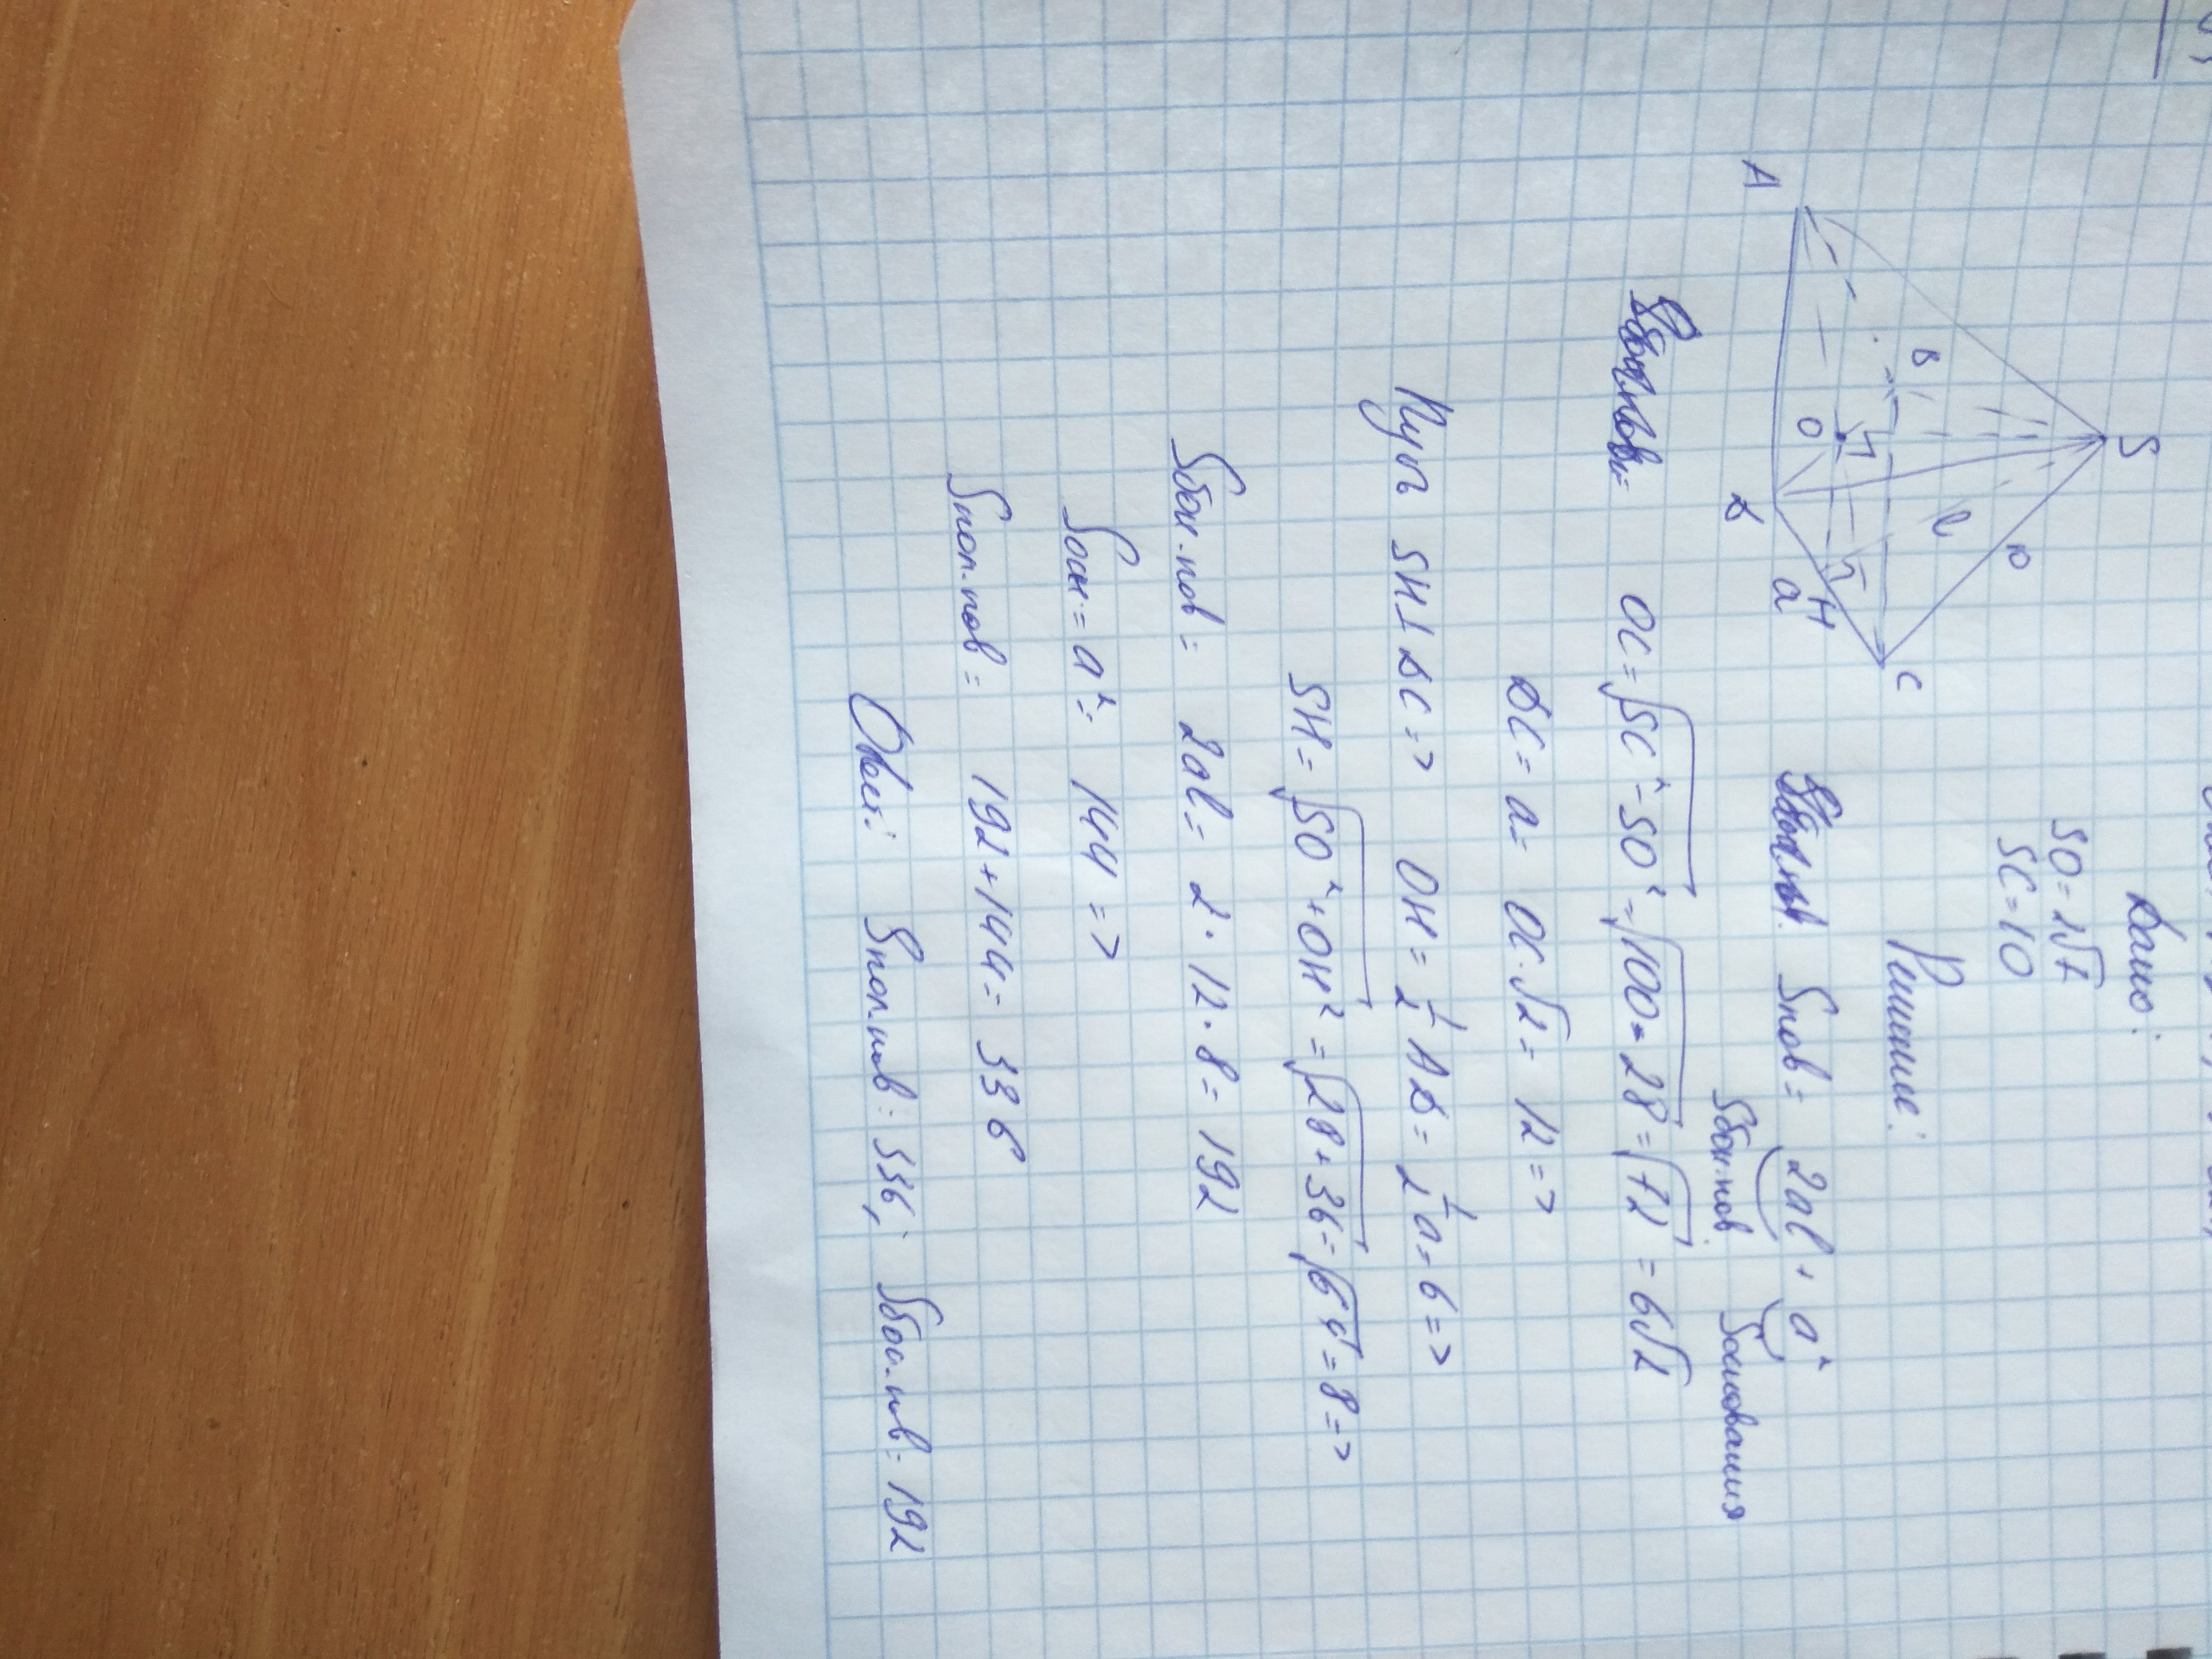 Дано:
SO = 2√7
SC = 10
Решение:
S
A
B
O
D
C
H
a
l
10
Sпов = 2al + a²
Sбок.пов. Sоснования
OC = √SC² - SO² = √100 - 28 = √72 = 6√2
DC = a = OC · √2 = 12 =>
Пусть SH ⊥ DC => OH = 1/2 AD = 1/2 a = 6 =>
SH = √SO² + OH² = √28 + 36 = √64 = 8 =>
Sбок.пов = 2al = 2 · 12 · 8 = 192
Sосн = a² = 144 =>
Sпол.пов = 192 + 144 = 336
Ответ: Sпол.пов = 336; Sбок.пов = 192